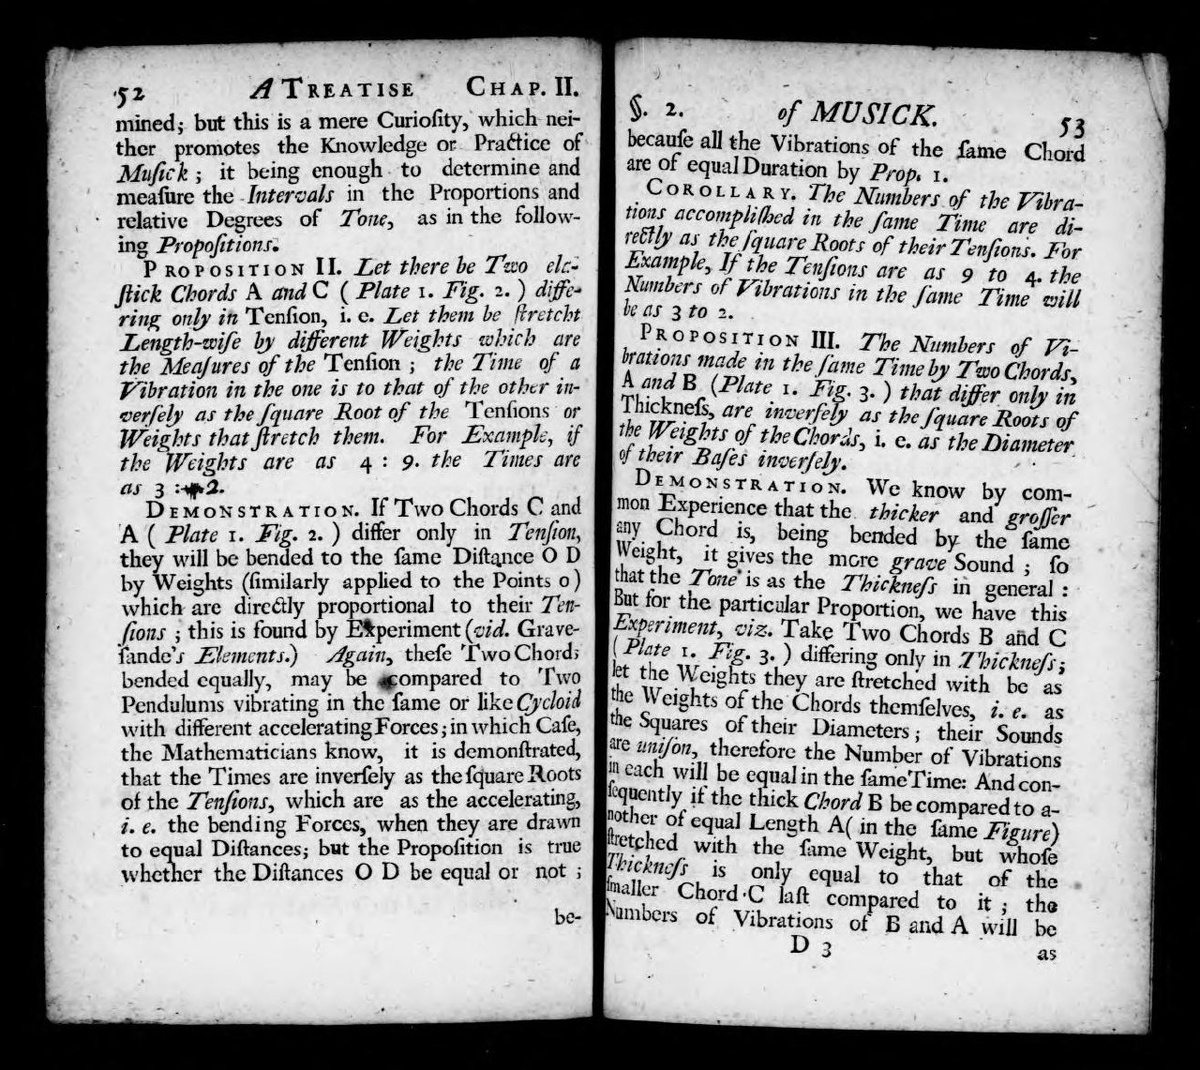 52 A TREATISE CHAP. II.
mined; but this is a mere Curioſity, which nei-
ther promotes the Knowledge or Practice of
Muſick; it being enough to determine and
meaſure the Intervals in the Proportions and
relative Degrees of Tone, as in the follow-
ing Propoſitions.
PROPOSITION II. Let there be Two ela-
ſtick Chords A and C (Plate 1. Fig. 2.) diffe-
ring only in Tenſion, i. e. Let them be ſtretcht
Length-wiſe by different Weights which are
the Meaſures of the Tenſion; the Time of a
Vibration in the one is to that of the other in-
verſely as the ſquare Root of the Tenſions or
Weights that ſtretch them. For Example, if
the Weights are as 4 : 9. the Times are
as 3 : 2.
DEMONSTRATION. If Two Chords C and
A (Plate 1. Fig. 2.) differ only in Tenſion,
they will be bended to the ſame Diſtance O D
by Weights (ſimilarly applied to the Points o)
which are directly proportional to their Ten-
ſions; this is found by Experiment (vid. Grave-
ſande's Elements.) Again, theſe Two Chords
bended equally, may be compared to Two
Pendulums vibrating in the ſame or like Cycloid
with different accelerating Forces; in which Caſe,
the Mathematicians know, it is demonſtrated,
that the Times are inverſely as the ſquare Roots
of the Tenſions, which are as the accelerating,
i. e. the bending Forces, when they are drawn
to equal Diſtances; but the Propoſition is true
whether the Diſtances O D be equal or not;
be-
§. 2. of MUSICK. 53
becauſe all the Vibrations of the ſame Chord
are of equal Duration by Prop. 1.
COROLLARY. The Numbers of the Vibra-
tions accompliſhed in the ſame Time are di-
rectly as the ſquare Roots of their Tenſions. For
Example, If the Tenſions are as 9 to 4. the
Numbers of Vibrations in the ſame Time will
be as 3 to 2.
PROPOSITION III. The Numbers of Vi-
brations made in the ſame Time by Two Chords,
A and B (Plate 1. Fig. 3.) that differ only in
Thickneſs, are inverſely as the ſquare Roots of
the Weights of the Chords, i. e. as the Diameter
of their Baſes inverſely.
DEMONSTRATION. We know by com-
mon Experience that the thicker and groſſer
any Chord is, being bended by the ſame
Weight, it gives the more grave Sound; ſo
that the Tone is as the Thickneſs in general:
But for the particular Proportion, we have this
Experiment, viz. Take Two Chords B and C
(Plate 1. Fig. 3.) differing only in Thickneſs;
let the Weights they are ſtretched with be as
the Weights of the Chords themſelves, i. e. as
the Squares of their Diameters; their Sounds
are uniſon, therefore the Number of Vibrations
in each will be equal in the ſame Time: And con-
ſequently if the thick Chord B be compared to a-
nother of equal Length A (in the ſame Figure)
ſtretched with the ſame Weight, but whoſe
Thickneſs is only equal to that of the
ſmaller Chord C laſt compared to it; the
Numbers of Vibrations of B and A will be
D 3 as